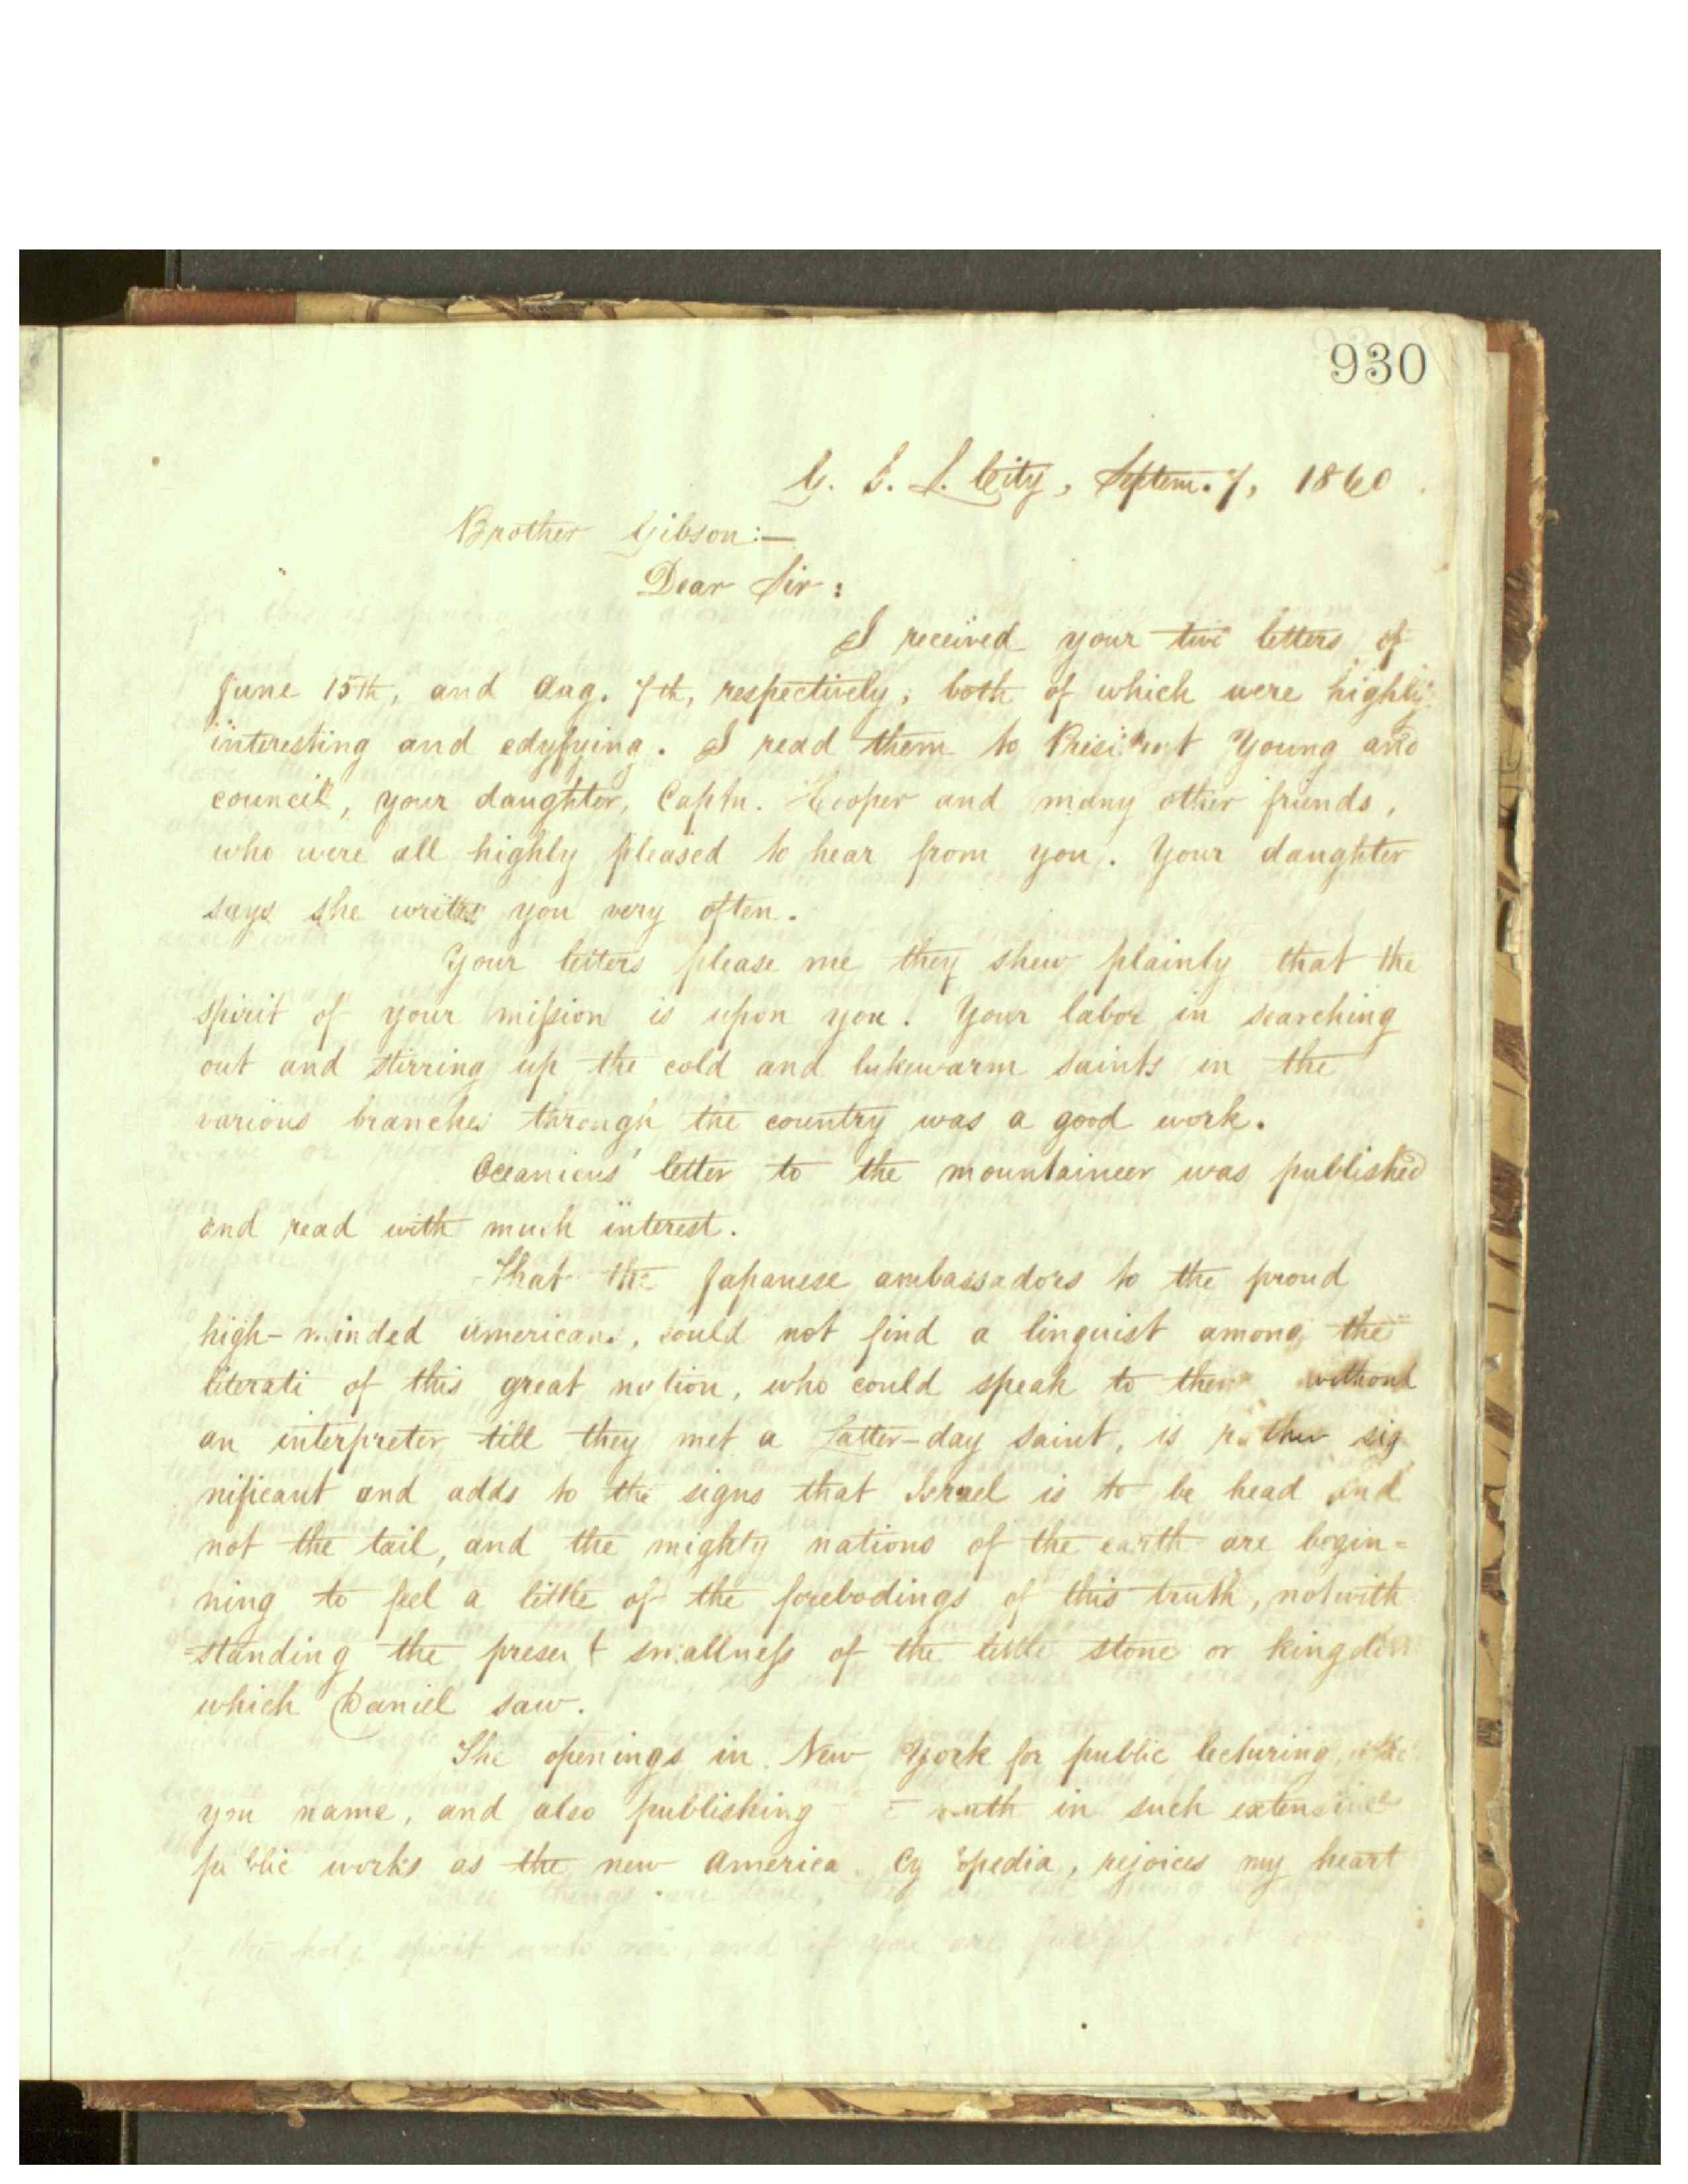 930
G. S. L. City, Septem. 7, 1860.
Brother Gibson:—
Dear Sir:
I received your two letters of
June 15th, and Aug. 7th, respectively, both of which were highly
interesting and edyfying. I read them to President Young and
council, your daughter, Captn. Hooper and many other friends,
who were all highly pleased to hear from you. Your daughter
says she writes you very often.
Your letters please me they shew plainly that the
spirit of your mission is upon you. Your labor in searching
out and stirring up the cold and lukewarm saints in the
various branches through the country was a good work.
Oceanicus' letter to the mountaineer was published
and read with much interest.
That the Japanese ambassadors to the proud
high-minded Americans, could not find a linguist among the
literati of this great nation, who could speak to them without
an interpreter till they met a Latter-day saint, is rather sig
nificant and adds to the signs that Israel is to be head and
not the tail, and the mighty nations of the earth are begin=
ning to feel a little of the forebodings of this truth, notwith
=standing the present smallness of the little stone or kingdom
which Daniel saw.
The openings in New York for public lecturing,
you name, and also publishing truth in such extensive
public works as the new America Cy opedia, rejoices my heart